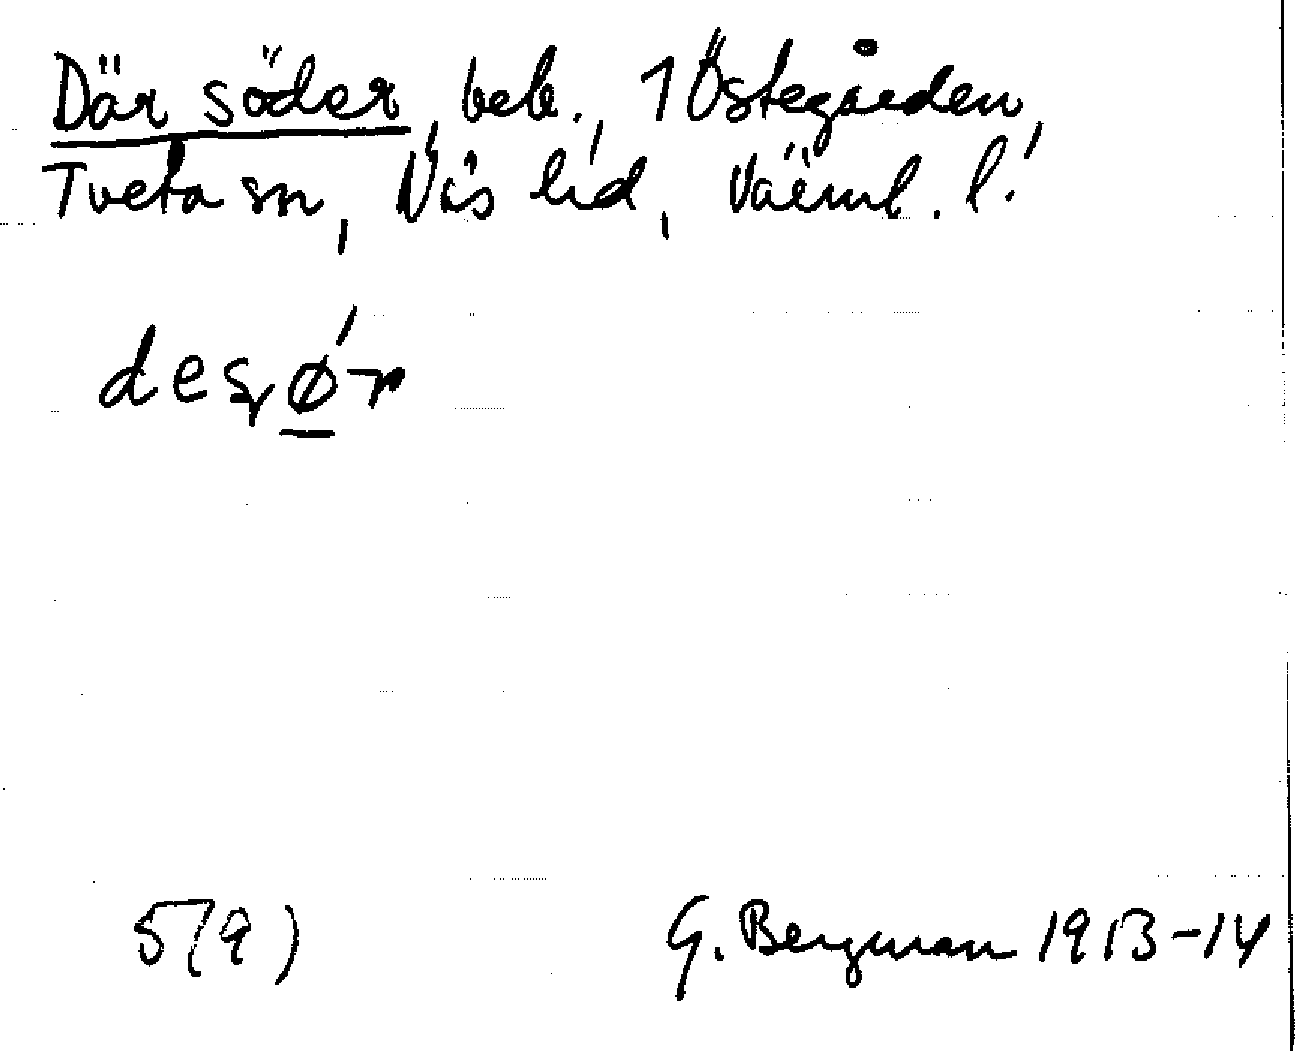 Där söder, beb., 1 Östegården,
Tveta sn, Näs hd, Värml. l.
5(9)
G. Bergman 1913-14